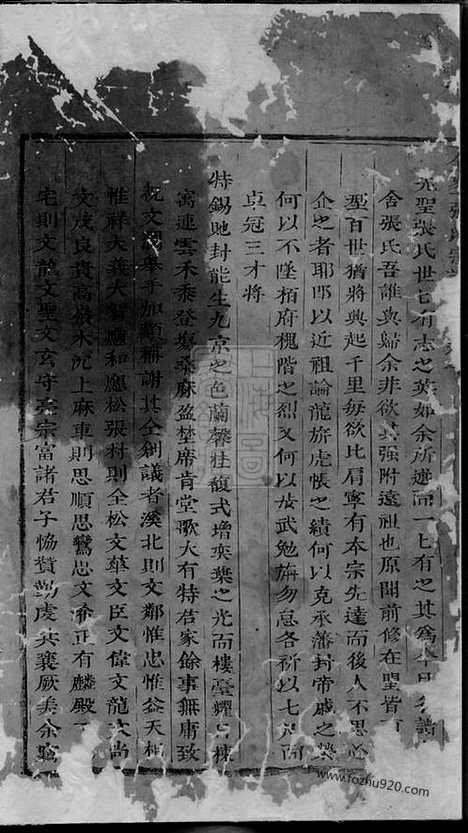 先聖張氏世已有志之英如余所述而一上有之其為
舍張氏吾誰與歸余非欲其强附遠祖也原聞前修在望皆有
型百世猶將興起千里每欲比肩寧有本宗先達而後人不思心
企之者耶即以近祖論龍旂虎帳之績何以克承藩封帝戚之榮
何以不墜栢府槐階之烈又何以友武勉旃勿怠各祈以七尺而
貞冠三才將
特錫貤封能生九京之色蘭馨桂馥式增奕葉之光而樓臺耀日棟
寓連雲禾黍登塲桑麻盈埜席肯堂歌大有特君家餘事無庸致
祝文閣舉手加額稱謝其仝創議者溪北則文鄰惟忠惟益天相
惟祥大義大智應和應松張村則全松文華文臣文偉文龍文尚
文茂良貴高嚴禾沉上麻車則思順思鸞思文希正有麟殿
宅則文龍文聖文玄守亮宗富諸君子恊贊勷虔共襄厥美余竊
上海圖
www.fozhu920.com